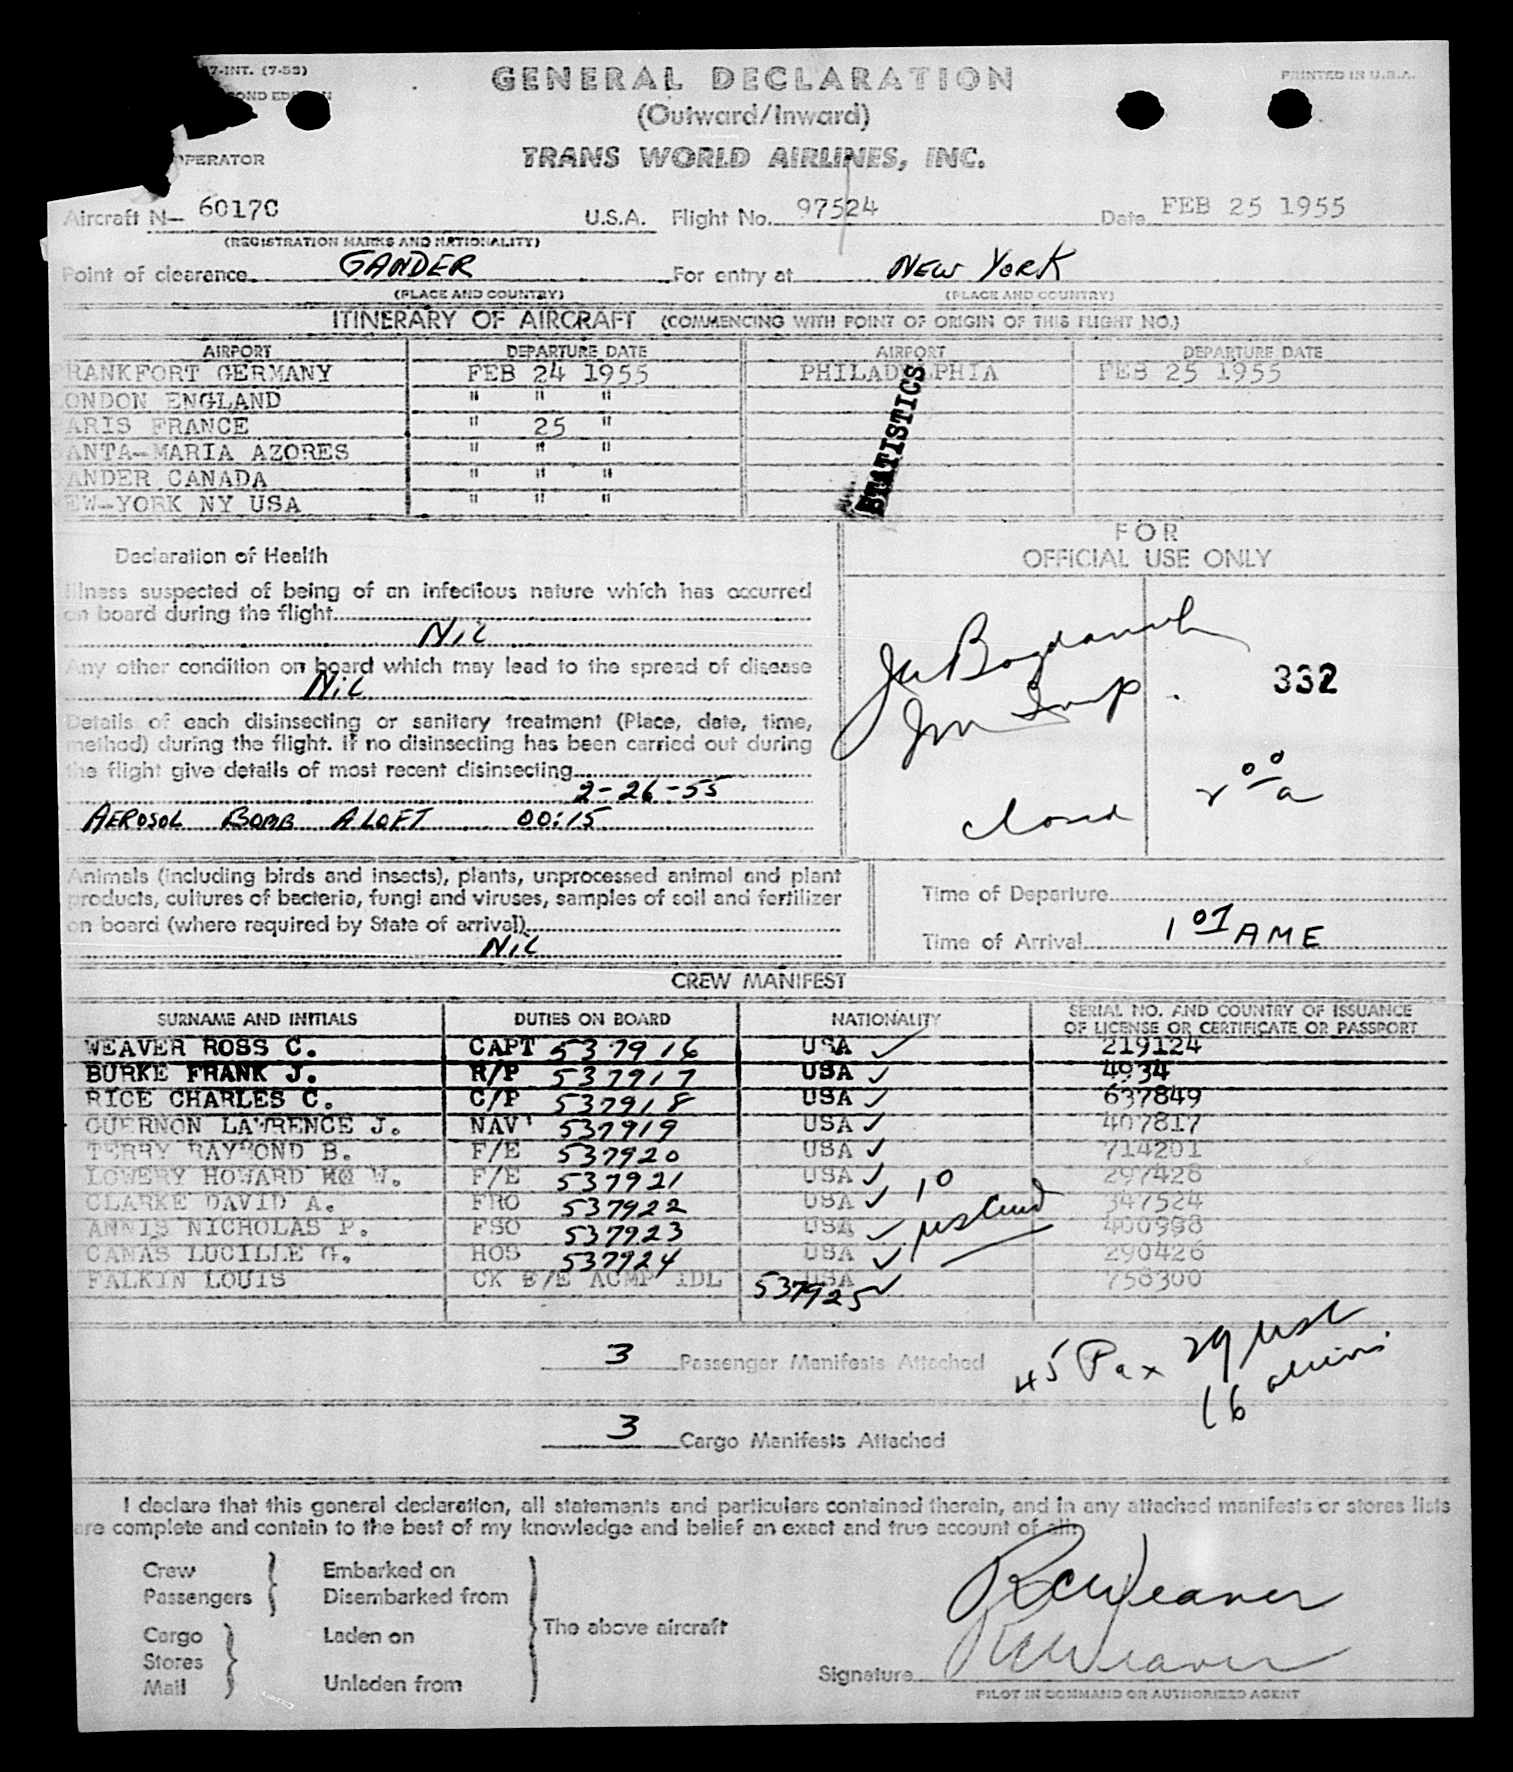 7-INT. (7-53)
GENERAL DECLARATION
PRINTED IN U.S.A.
OND EDITION
(Outward/Inward)
OPERATOR
TRANS WORLD AIRLINES, INC.
Aircraft N- 6017C U.S.A. Flight No. 97524 Date FEB 25 1955
(REGISTRATION MARKS AND NATIONALITY)
Point of clearance GANDER For entry at NEW YORK
(PLACE AND COUNTRY) (PLACE AND COUNTRY)
ITINERARY OF AIRCRAFT (COMMENCING WITH POINT OF ORIGIN OF THIS FLIGHT NO.)
AIRPORT DEPARTURE DATE AIRPORT DEPARTURE DATE
RANKFORT GERMANY FEB 24 1955 PHILADELPHIA FEB 25 1955
ONDON ENGLAND " " "
ARIS FRANCE " 25 "
ANTA-MARIA AZORES " " "
ANDER CANADA " " "
EW-YORK NY USA " " "
STATISTICS
FOR
OFFICIAL USE ONLY
Declaration of Health
Illness suspected of being of an infectious nature which has occurred
on board during the flight
Nil
Any other condition on board which may lead to the spread of disease
Nil
332
Details of each disinsecting or sanitary treatment (Place, date, time,
method) during the flight. If no disinsecting has been carried out during
the flight give details of most recent disinsecting
2-26-55
AEROSOL BOMB ALOFT 00:15
closed 2 00 a
Animals (including birds and insects), plants, unprocessed animal and plant
products, cultures of bacteria, fungi and viruses, samples of soil and fertilizer
on board (where required by State of arrival)
Nil
Time of Departure
Time of Arrival 1 01 AME
CREW MANIFEST
SURNAME AND INITIALS DUTIES ON BOARD NATIONALITY SERIAL NO. AND COUNTRY OF ISSUANCE
OF LICENSE OR CERTIFICATE OR PASSPORT
WEAVER ROSS C. CAPT 537916 USA ✓ 219124
BURKE FRANK J. R/P 537917 USA ✓ 4934
RICE CHARLES C. C/P 537918 USA ✓ 637849
GUERNON LAWRENCE J. NAV' 537919 USA ✓ 407817
TERRY RAYMOND B. F/E 537920 USA ✓ 714201
LOWERY HOWARD W. F/E 537921 USA ✓ 297428
CLARKE DAVID A. FRO 537922 USA ✓ 347524
ANNIS NICHOLAS P. FSO 537923 USA ✓ 400998
CAMAS LUCILLE G. HOS 537924 USA ✓ 290426
FALKIN LOUIS CK F/E ACMP IDL 537925 USA ✓ 758300
10
3 Passenger Manifests Attached
45 Pax 29 usc
16 aliens
3 Cargo Manifests Attached
I declare that this general declaration, all statements and particulars contained therein, and in any attached manifests or stores lists
are complete and contain to the best of my knowledge and belief an exact and true account of all:
Crew Embarked on
Passengers Disembarked from
The above aircraft
Cargo Laden on
Stores
Mail Unladen from
RC Weaver
RC Weaver
Signature
PILOT IN COMMAND OR AUTHORIZED AGENT